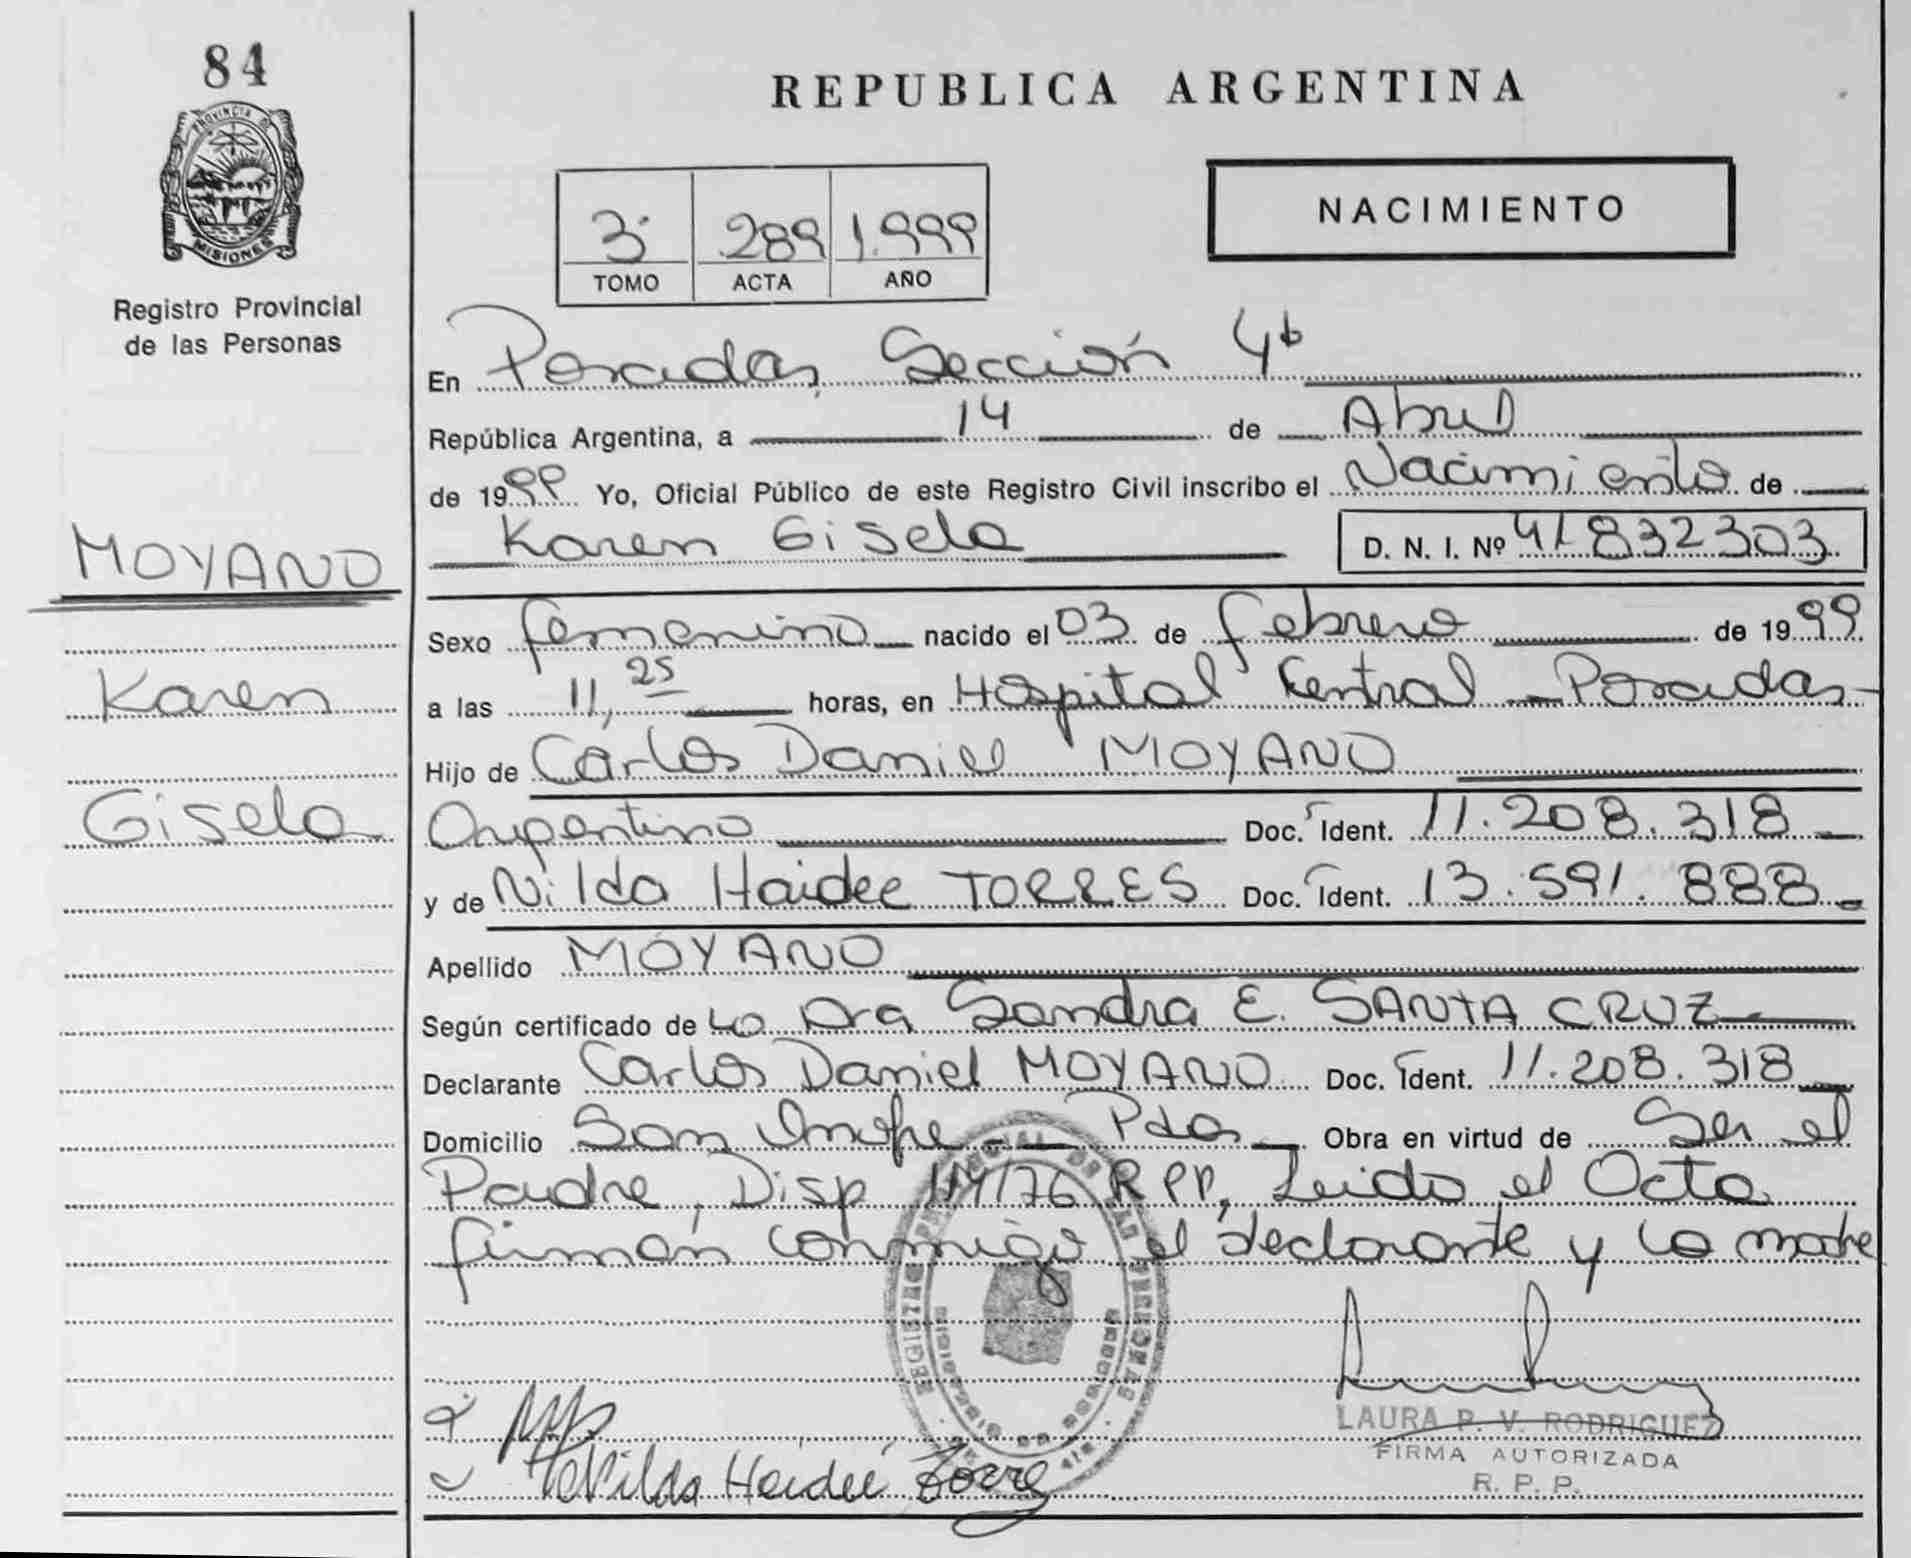 84
PROVINCIA DE
MISIONES
Registro Provincial
de las Personas
MOYANO
Karen
Gisela
REPUBLICA ARGENTINA
3º 289 1.999
TOMO ACTA AÑO
NACIMIENTO
En Posadas, Sección 4ta
República Argentina, a 14 de Abril
de 1999 Yo, Oficial Público de este Registro Civil inscribo el Nacimiento de
Karen Gisela D. N. I. Nº 41832303
Sexo femenino nacido el 03 de febrero de 1999
a las 11,25 horas, en Hospital Central - Posadas
Hijo de Carlos Daniel MOYANO
Argentino Doc. Ident. 11.208.318
y de Nilda Haidee TORRES Doc. Ident. 13.591.888
Apellido MOYANO
Según certificado de La Dra Sandra E. SANTA CRUZ
Declarante Carlos Daniel MOYANO Doc. Ident. 11.208.318
Domicilio San Onofre - Pdas Obra en virtud de Ser el
Padre, Disp 114/76 RPP, Leida el Acta
firman conmigo el declarante y la madre
LAURA P. V. RODRIGUEZ
FIRMA AUTORIZADA
R. P. P.
Nilda Heideé Torre